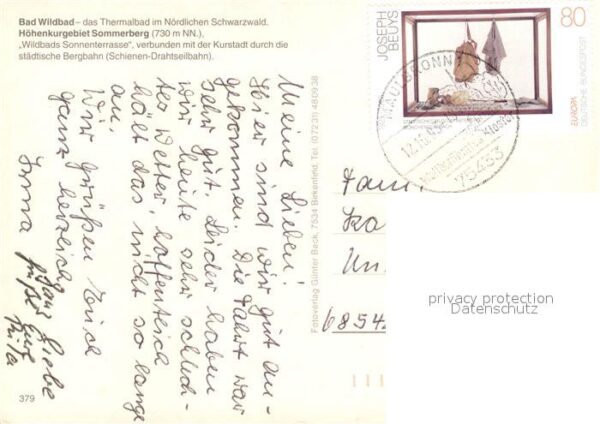 Bad Wildbad – das Thermalbad im Nördlichen Schwarzwald.
Höhenkurgebiet Sommerberg (730 m NN.),
„Wildbads Sonnenterrasse", verbunden mit der Kurstadt durch die
städtische Bergbahn (Schienen-Drahtseilbahn).
Meine Lieben!
Hier sind wir gut an-
gekommen. Die Fahrt war
sehr gut. Leider haben
wir heute sehr schlech-
tes Wetter, hoffentlich
hält das nicht so lange
an.
Wir grüßen Euch
ganz herzlich
Irma
Ganz liebe
Grüße Eure
Rita
379
Fotoverlag Günter Beck, 7534 Birkenfeld, Tel. (07231) 480938
JOSEPH
BEUYS
80
DEUTSCHE BUNDESPOST
EUROPA
MAULBRONN
75433
Fam.
6854
privacy protection
Datenschutz